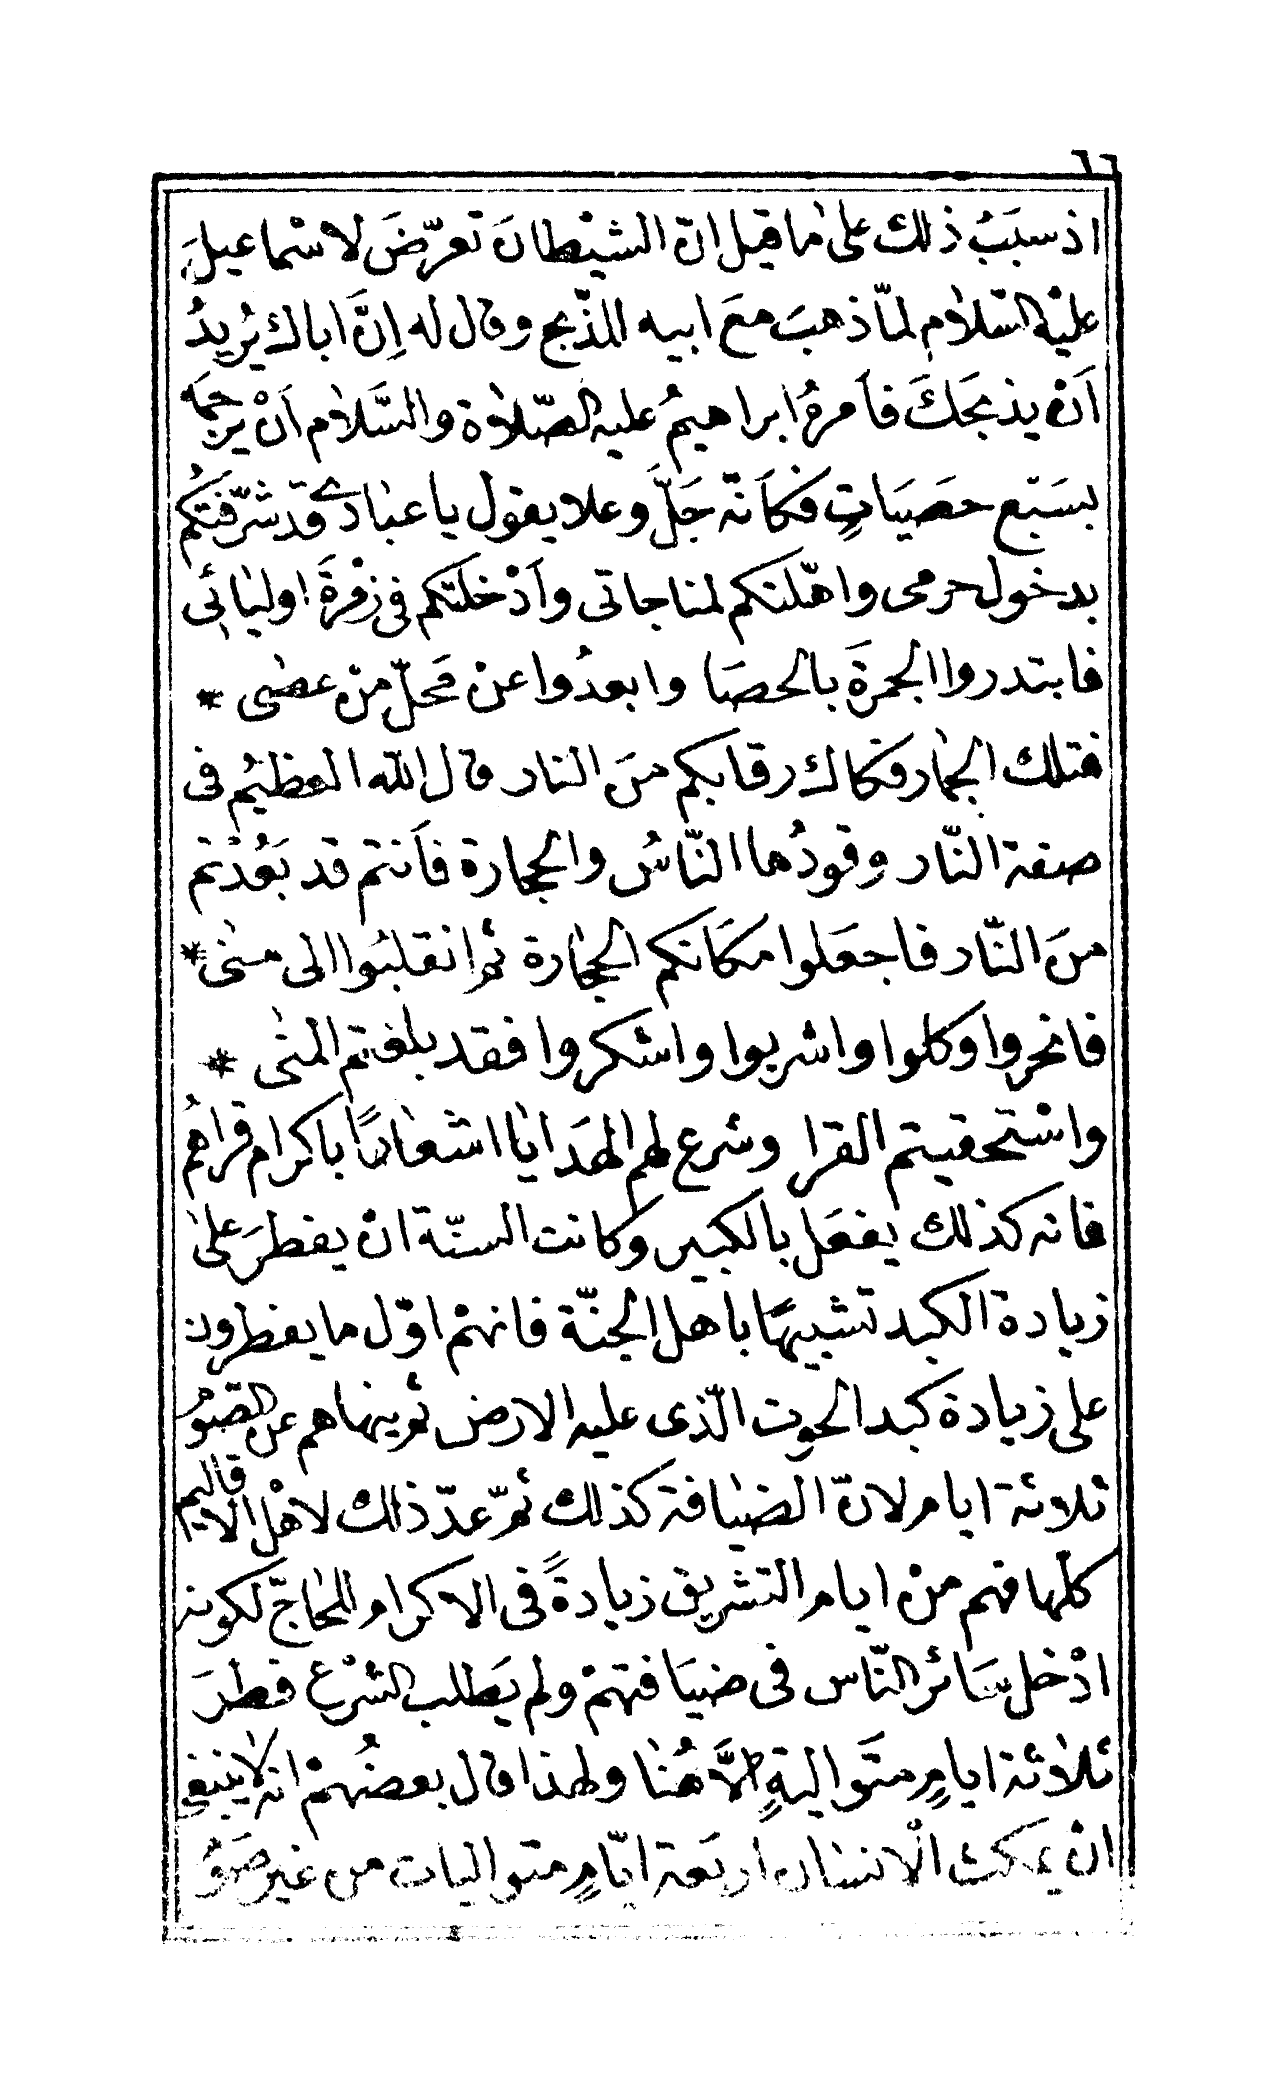 ٦٦
اذ سبَبُ ذلك على ما قيل انّ الشيْطانَ تعرّضَ لاسْماعيلَ
عليْه السّلام لمّا ذهبَ معَ ابيه للذّبح وقال له اِنَّ اباك يُريدُ
اَنْ يذبحَكَ فاَمرهُ ابراهيمُ عليه الصّلاة والسَّلام اَنْ يرجمَه
بسَبْع حصَيَاتٍ فكاَنّه جَلَّ وعلا يقول يا عبادي قد شرّفتكُم
بدخول حرمى واهّلتكم لمناجاتى واَدْخلتكم فى زمْرةَ اوليائى
فابتدروا الجمرةَ بالحصَا وابعدُوا عن مَحلّ منْ عصٰى *
فتلك الجمار فكاك رقابكم منَ النار قال الله العظيمُ فى
صفة النّار وقودُها النّاسُ والحجارة فاَنتم قد بَعُدْتم
منَ النّار فاجعَلوا مكانكم الحجارة ثم انقلبُوا الى منٰى *
فانحروا وكلوا واشربوا واشكروا فقد بلغتم المنٰى *
واسْتحقيتم القرا وشرع لهم الهدَايا اشعارًا باكرام قراهُم
فانه كذلك يفعَل بالكبير وكانت السنّة انْ يفطرَ علىٰ
زيادة الكبد تشبيهًا باهل الجنّة فانهمْ اوّل ما يفطرون
على زيادة كبد الحوت الّذى عليه الارض ثم ينهاهم عن الصَوْم
ثلاثة ايام لانّ الضيافة كذلك ثمّ عدّ ذلك لاهْل الاقاليم
كلها فهم منْ ايام التشريق زيادةً فى الاكرام للحٰاجّ لكونه
ادْخل سَائر النّاس فى ضيَافتهمْ ولم يَطلب الشرْع فطرَ
ثلاثة ايامٍ متَوالية الاَّ هُنا ولهذا قال بعضُهمْ انه لا ينبغى
انْ يمكث الْانسٰان اربَعة ايّامٍ متواليات من غير صَوْم